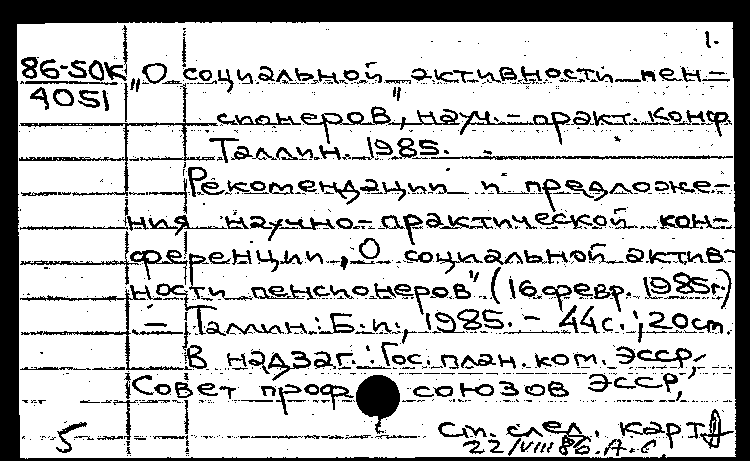 1.
86-50К „О социальной активности пен-
4051
сионеров", науч.-практ. конф
Таллин. 1985.
Рекомендации и предложе-
ния научно-практической кон-
ференции „О социальной актив-
ности пенсионеров" (16 февр. 1985г.)
.- Таллин: Б.и., 1985. - 44с.; 20см.
В надзаг.: Гос. план. ком. ЭССР,
Совет проф союзов ЭССР,
5 см. след. карт
22/VIII 86. А.С.